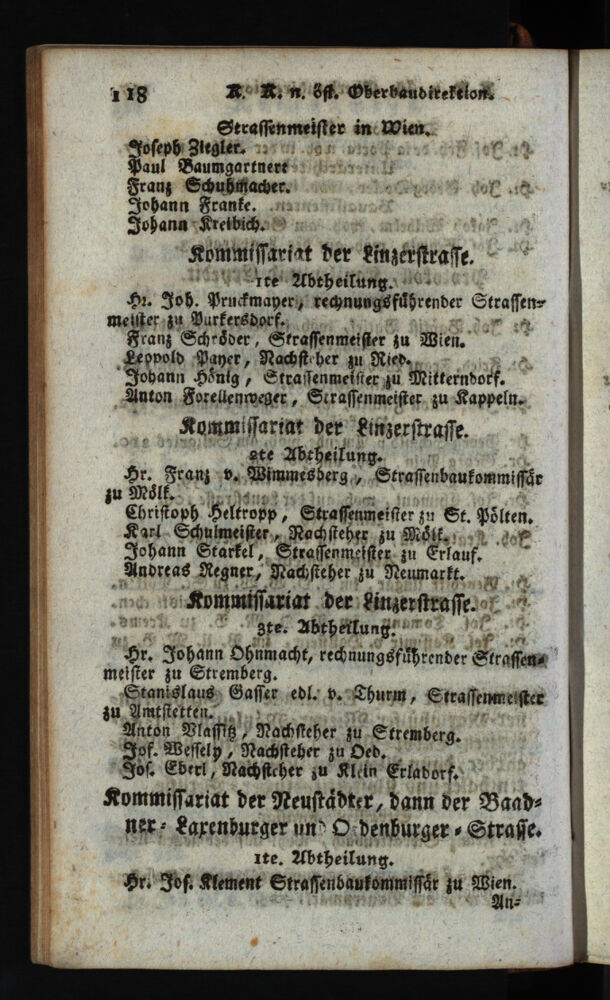 118 K. K. n. öst. Oberbaudirektion.
Strassenmeister in Wien.
Joseph Ziegler.
Paul Baumgartner
Franz Schuhmacher.
Johann Franke.
Johann Kreibich.
Kommissariat der Linzerstrasse.
1te Abtheilung.
Hr. Joh. Pruckmayer, rechnungsführender Strassen-
meister zu Purkersdorf.
Franz Schröder, Strassenmeister zu Wien.
Leopold Payer, Nachsteher zu Ried.
Johann Hönig, Strassenmeister zu Mitterndorf.
Anton Forellenweger, Strassenmeister zu Kappeln.
Kommissariat der Linzerstrasse.
2te Abtheilung.
Hr. Franz v. Wimmesberg, Strassenbaukommissär
zu Mölk.
Christoph Heltropp, Strassenmeister zu St. Pölten.
Karl Schulmeister, Nachsteher zu Mölk.
Johann Starkel, Strassenmeister zu Erlauf.
Andreas Regner, Nachsteher zu Neumarkt.
Kommissariat der Linzerstrasse.
3te. Abtheilung.
Hr. Johann Ohnmacht, rechnungsführender Strassen-
meister zu Stremberg.
Stanislaus Gasser edl. v. Thurm, Strassenmeister
zu Amtstetten.
Anton Vlassitz, Nachsteher zu Stremberg.
Jos. Wessely, Nachsteher zu Oed.
Jos. Eberl, Nachsteher zu Klein Erladorf.
Kommissariat der Neustädter, dann der Baad-
ner- Laxenburger und Oedenburger-Strasse.
1te. Abtheilung.
Hr. Jos. Klement Strassenbaukommissär zu Wien.
An-